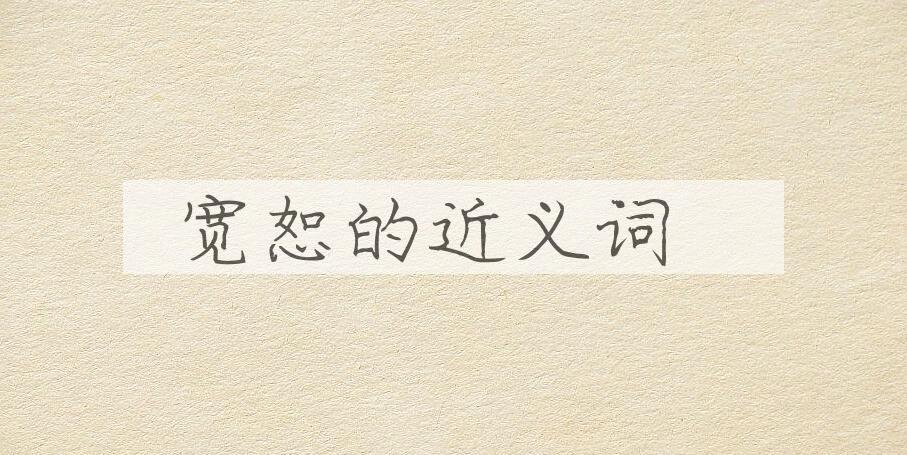 宽恕的近义词